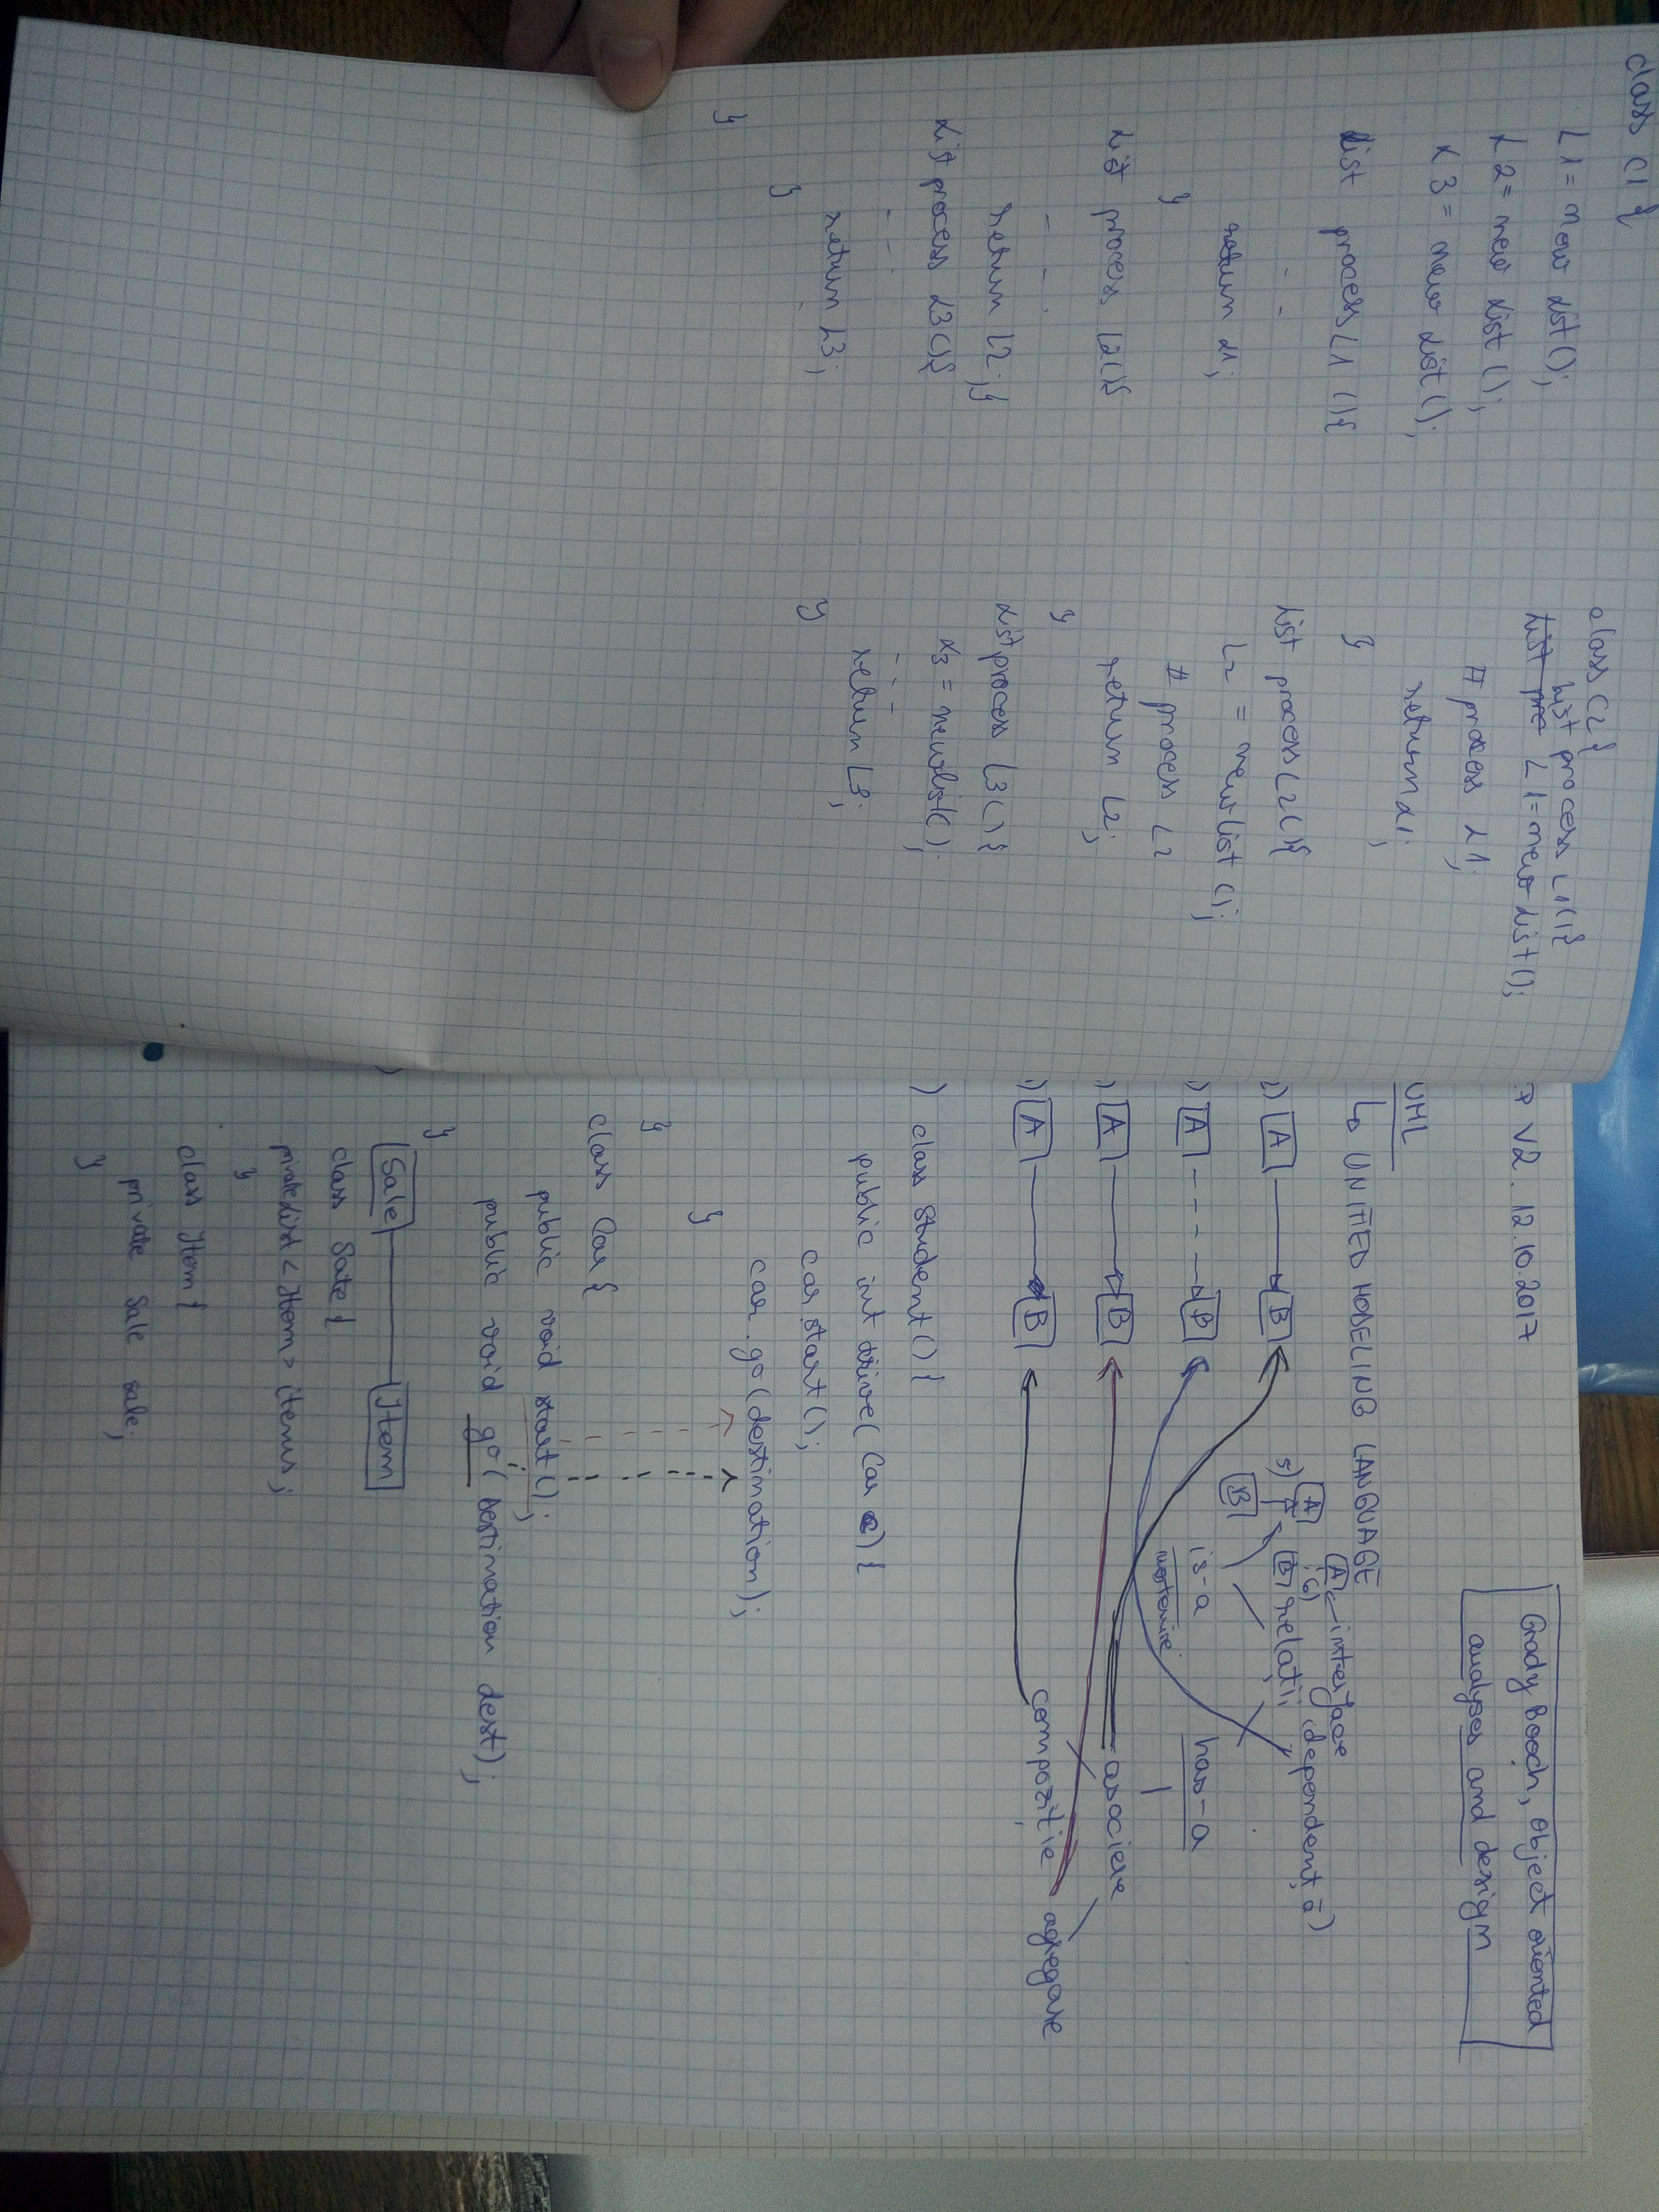 class C1 {
L1 = new List();
L2 = new List();
L3 = new List();
List process L1 (){
- -
return L1;
}
List process L2(){
- - -
return L2; }
List process L3(){
- - -
return L3;
}
}
class C2 {
List process L1(){
List pre L1 = new List();
# process L1;
return L1;
}
List process L2(){
L2 = new list ();
# process L2
return L2;
}
List process L3(){
L3 = new list();
- - -
return L3;
}
P V2. 12.10.2017
Grady Booch, Object oriented
analyses and design
UML
↳ UNITIED MODELING LANGUAGE
A interface
) A B
5) A B
6) B relații (dependență)
) A B
is-a has-a
moștenire
) A B
asociere
compoziție agregare
) A B
) class Student(){
public int drive( Car c) {
car.start();
car.go(destination);
}
}
class Car {
public void start();
public void go( Destination dest);
}
) Sale Item
class Sale {
private List < Item > items;
}
class Item {
private Sale sale;
}